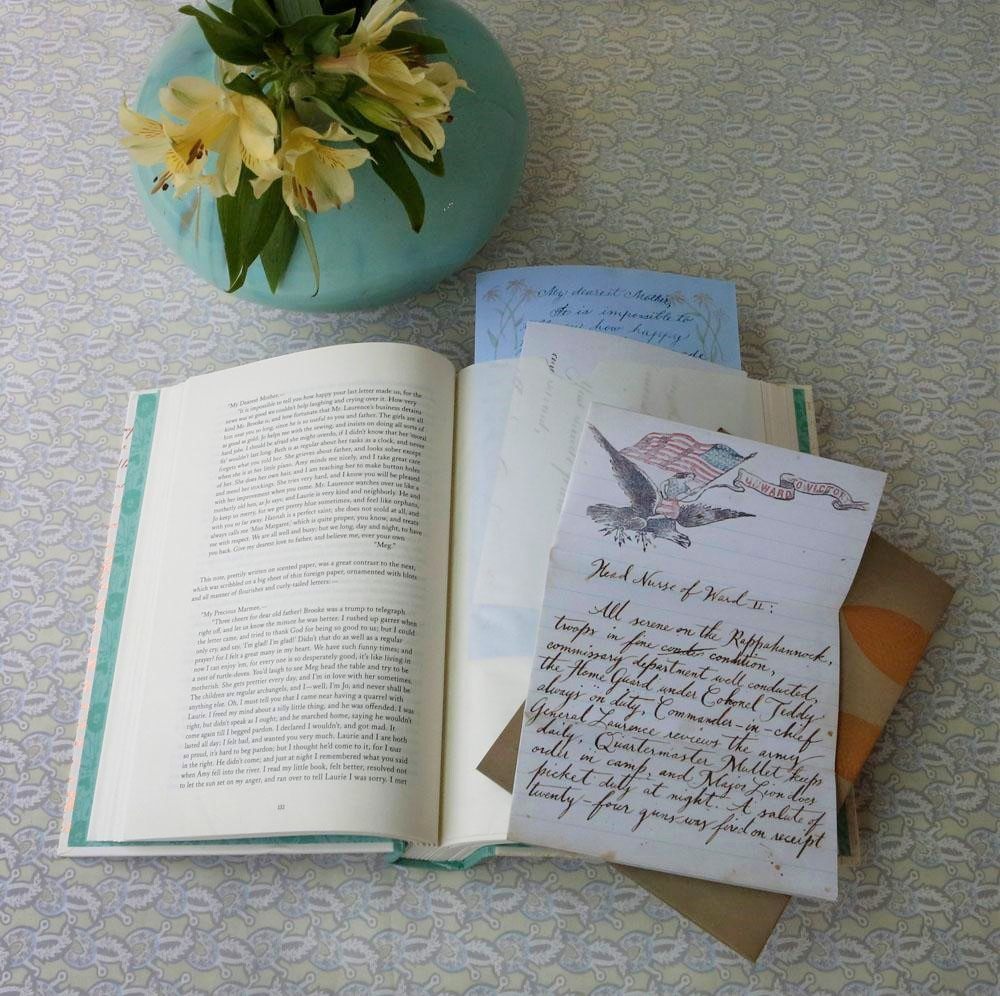 My dearest Mother,
It is impossible to
how happy
"My Dearest Mother,—
"It is impossible to tell you how happy your last letter made us, for the
news was so good we couldn't help laughing and crying over it. How very
kind Mr. Brooke is, and how fortunate that Mr. Laurence's business detains
him near you so long, since he is so useful to you and father. The girls are all
as good as gold. Jo helps me with the sewing, and insists on doing all sorts of
hard jobs. I should be afraid she might overdo, if I didn't know that her 'moral
fit' wouldn't last long. Beth is as regular about her tasks as a clock, and never
forgets what you told her. She grieves about father, and looks sober except
when she is at her little piano. Amy minds me nicely, and I take great care
of her. She does her own hair, and I am teaching her to make button holes
and mend her stockings. She tries very hard, and I know you will be pleased
with her improvement when you come. Mr. Laurence watches over us like a
motherly old hen, as Jo says; and Laurie is very kind and neighborly. He and
Jo keep us merry, for we get pretty blue sometimes, and feel like orphans,
with you so far away. Hannah is a perfect saint; she does not scold at all, and
always calls me 'Miss Margaret,' which is quite proper, you know, and treats
me with respect. We are all well and busy; but we long, day and night, to have
you back. Give my dearest love to father, and believe me, ever your own
"Meg."
This note, prettily written on scented paper, was a great contrast to the next,
which was scribbled on a big sheet of thin foreign paper, ornamented with blots
and all manner of flourishes and curly-tailed letters:—
"My Precious Marmee,—
"Three cheers for dear old father! Brooke was a trump to telegraph
right off, and let us know the minute he was better. I rushed up garret when
the letter came, and tried to thank God for being so good to us; but I could
only cry, and say, 'I'm glad! I'm glad!' Didn't that do as well as a regular
prayer? for I felt a great many in my heart. We have such funny times; and
now I can enjoy 'em, for every one is so desperately good, it's like living in
a nest of turtle-doves. You'd laugh to see Meg head the table and try to be
motherish. She gets prettier every day, and I'm in love with her sometimes.
The children are regular archangels, and I—well, I'm Jo, and never shall be
anything else. Oh, I must tell you that I came near having a quarrel with
Laurie. I freed my mind about a silly little thing, and he was offended. I was
right, but didn't speak as I ought; and he marched home, saying he wouldn't
come again till I begged pardon. I declared I wouldn't, and got mad. It
lasted all day; I felt bad, and wanted you very much. Laurie and I are both
so proud, it's hard to beg pardon; but I thought he'd come to it, for I was
in the right. He didn't come; and just at night I remembered what you said
when Amy fell into the river. I read my little book, felt better, resolved not
to let the sun set on my anger, and ran over to tell Laurie I was sorry. I met
132
ONWARD TO VICTORY
Head Nurse of Ward II:
All serene on the Rappahannock,
troops in fine condition,
commissary department well conducted,
the Home Guard under Colonel Teddy
always on duty, Commander-in-chief
General Laurence reviews the army
daily, Quartermaster Mullet keeps
order in camp, and Major Lion does
picket duty at night. A salute of
twenty-four guns was fired on receipt